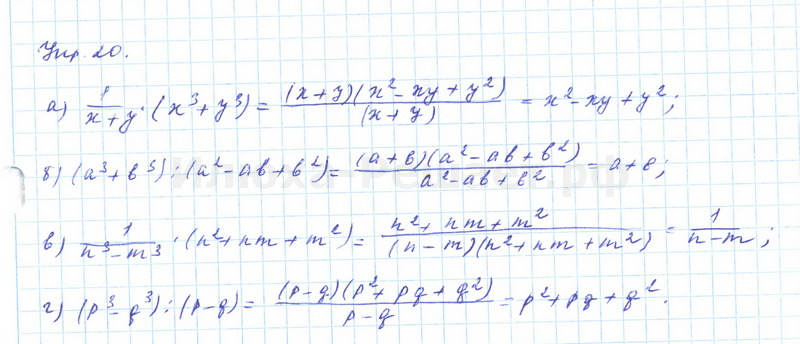 Упр. 20.
а) \frac{1}{x+y} · (x³ + y³) = \frac{(x+y)(x² - xy + y²)}{(x+y)} = x² - xy + y²;
б) (a³ + b³) : (a² - ab + b²) = \frac{(a+b)(a² - ab + b²)}{a² - ab + b²} = a + b;
в) \frac{1}{n³ - m³} · (n² + nm + m²) = \frac{n² + nm + m²}{(n-m)(n² + nm + m²)} = \frac{1}{n-m};
г) (p³ - q³) : (p - q) = \frac{(p-q)(p² + pq + q²)}{p-q} = p² + pq + q².